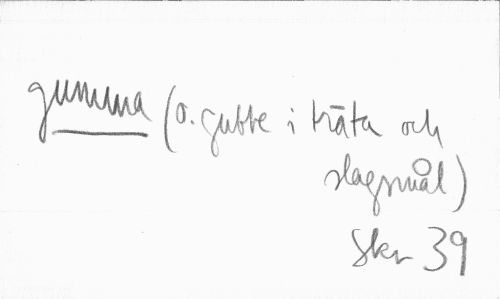 gumma (o. gubbe i träta och
slagsmål)
Skr 39